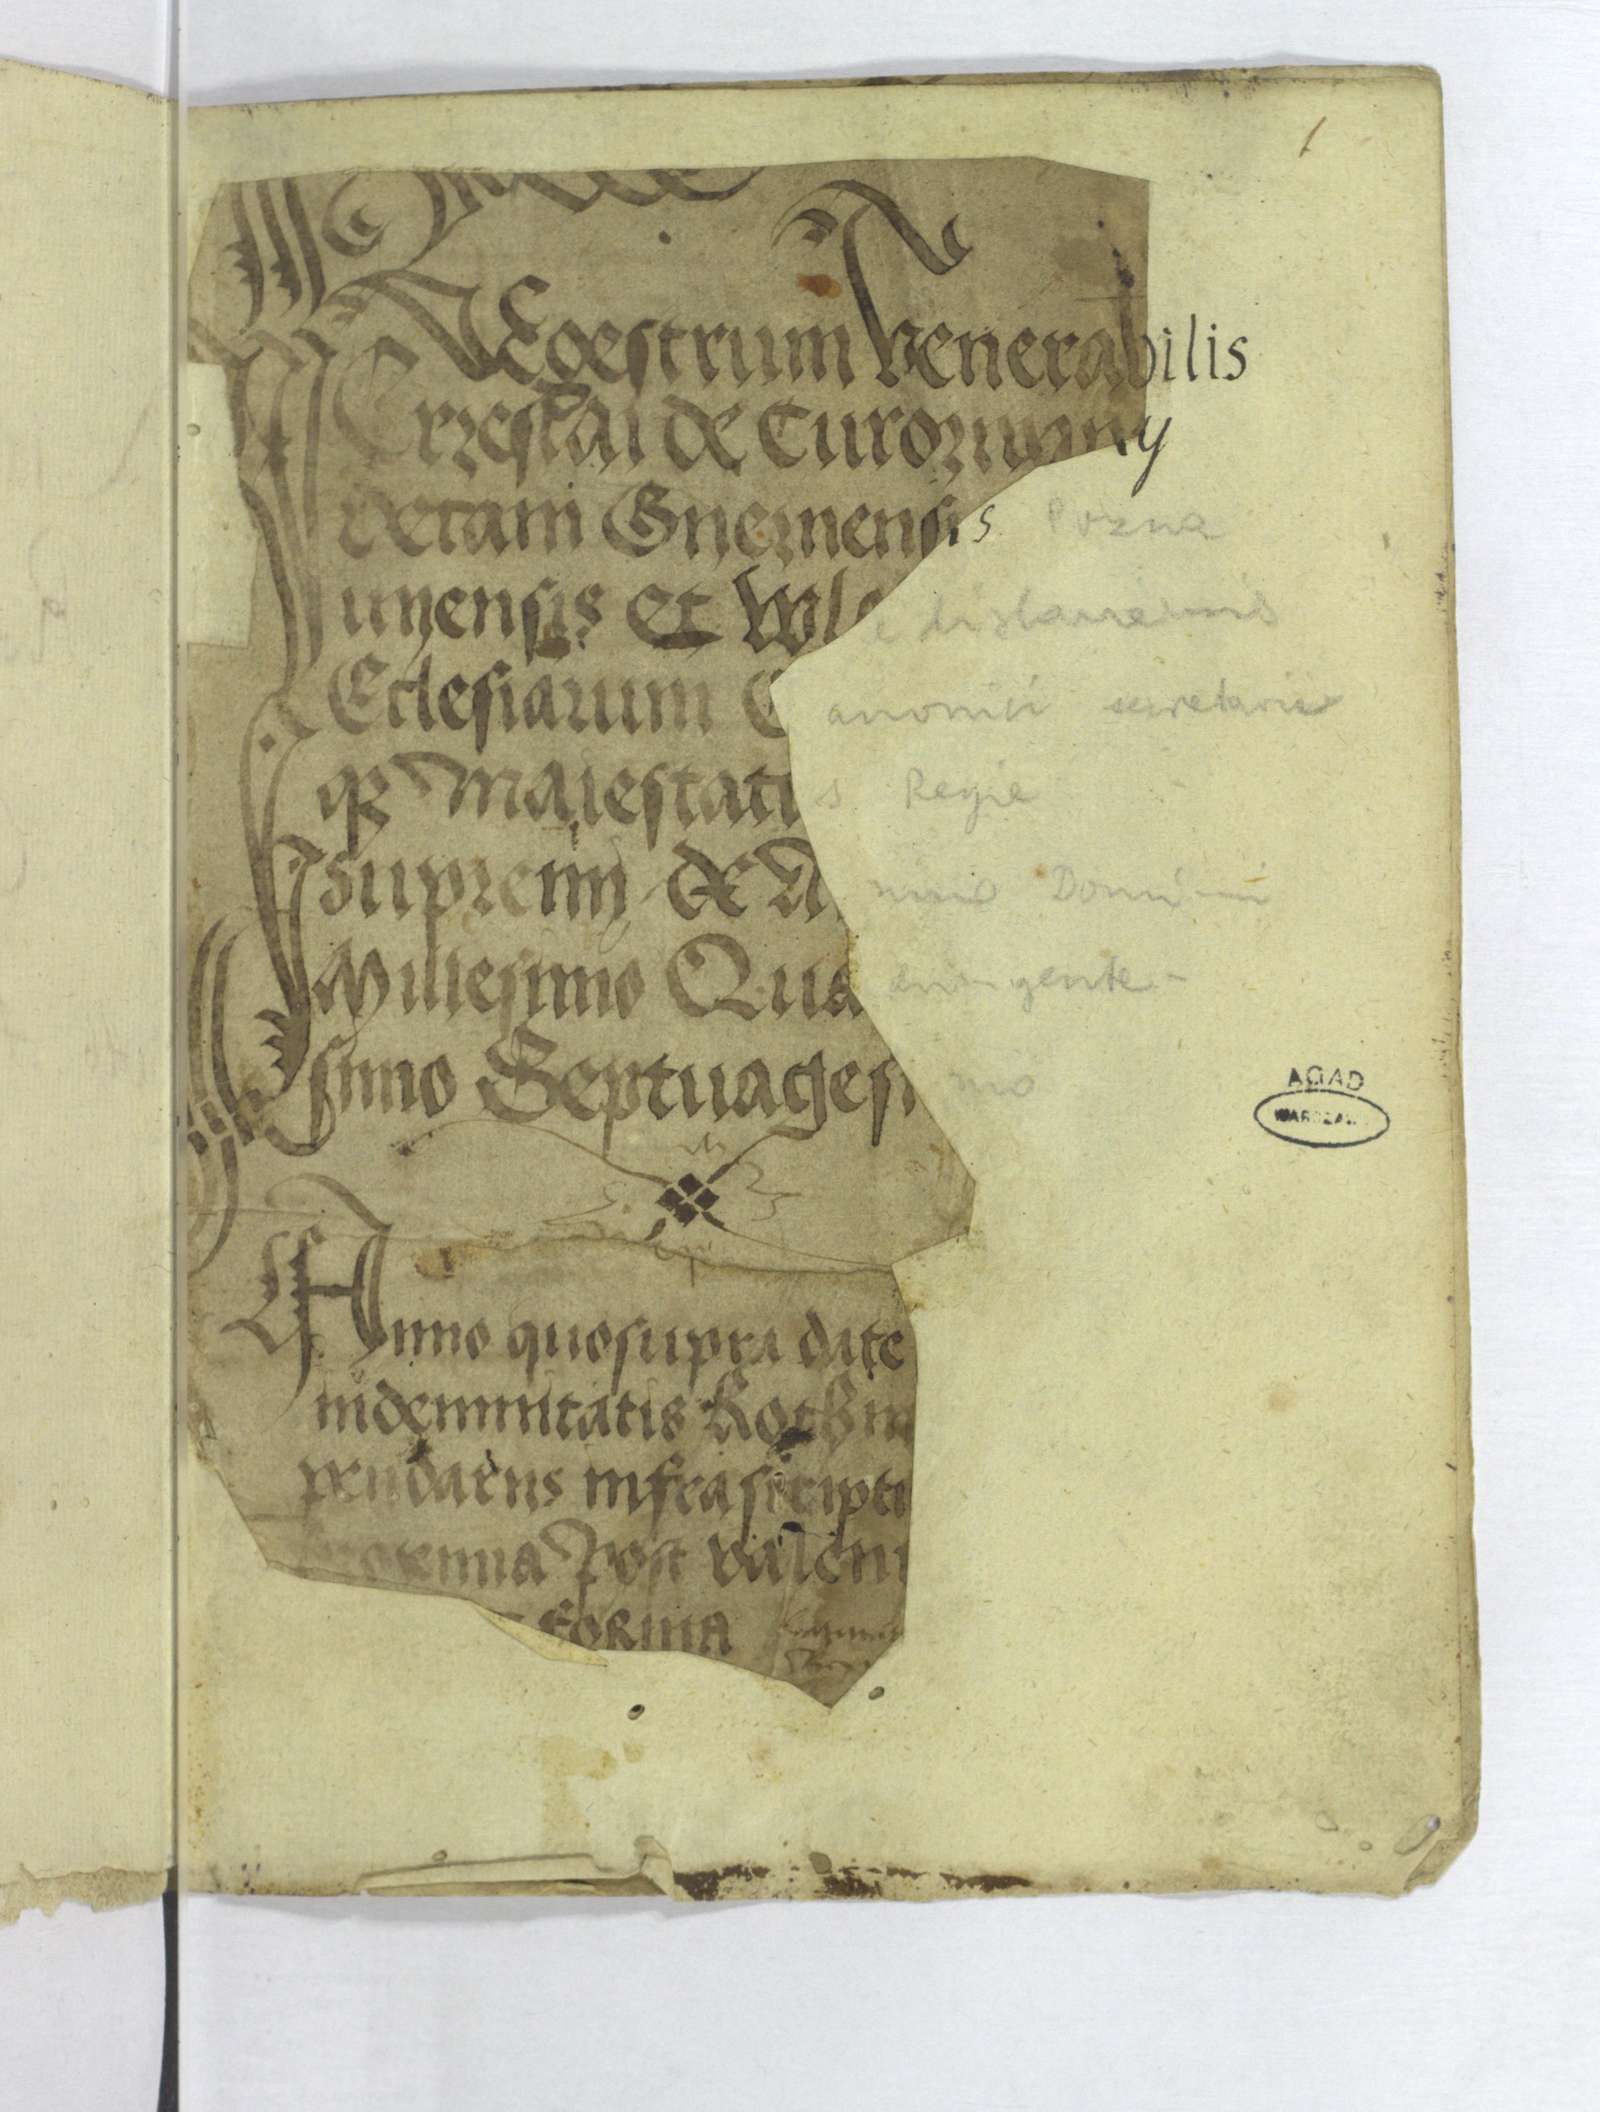 1
Regestrum Venerabilis
Crzeslai de Curozwanky
decani Gneznensis Pozna
nyensis et Wladislaviensis
Ecclesiarum Canonici secretarii
q Maiestatis Regie
Supremi de Anno Domini
Millesimo Quadringente-
simo Septuagesimo
Anno quo supra date
indemnitatis
infrascripti
post
forma
AGAD
WARSZAWA